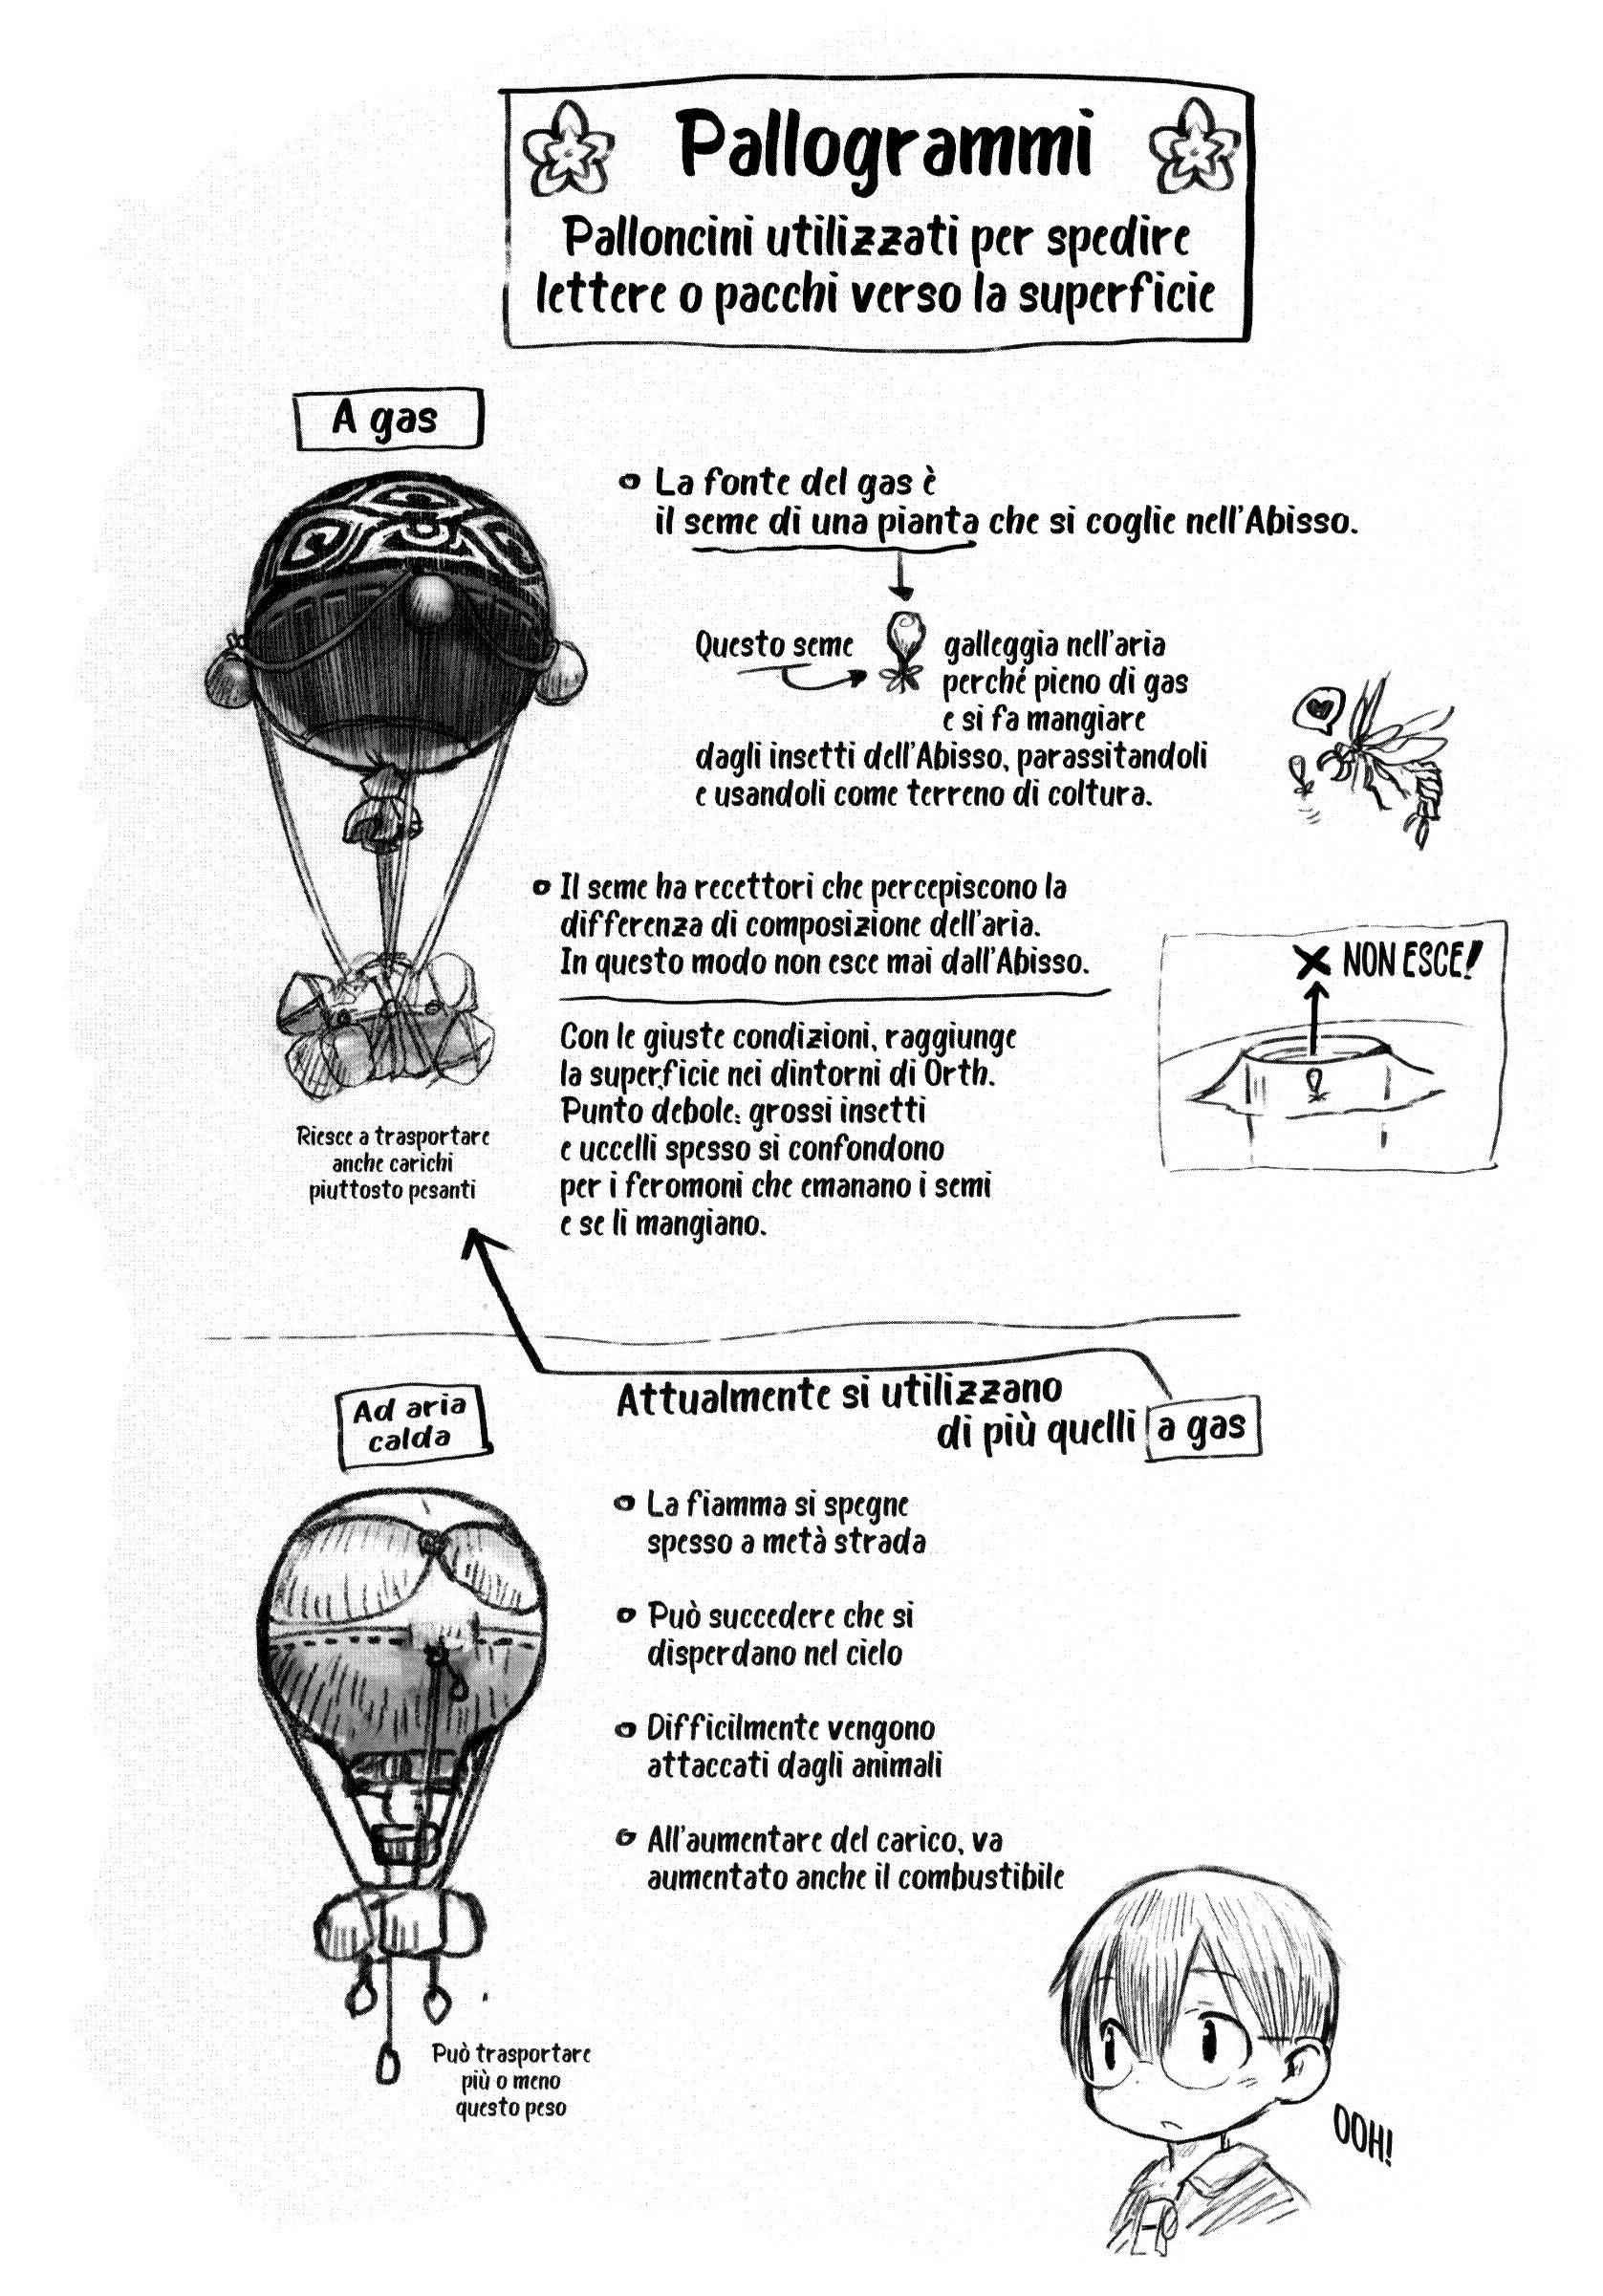 Pallogrammi
Palloncini utilizzati per spedire
lettere o pacchi verso la superficie
A gas
La fonte del gas è
il seme di una pianta che si coglie nell'Abisso.
Questo seme galleggia nell'aria
perché pieno di gas
e si fa mangiare
dagli insetti dell'Abisso, parassitandoli
e usandoli come terreno di coltura.
Il seme ha recettori che percepiscono la
differenza di composizione dell'aria.
In questo modo non esce mai dall'Abisso.
NON ESCE!
Con le giuste condizioni, raggiunge
la superficie nei dintorni di Orth.
Punto debole: grossi insetti
e uccelli spesso si confondono
per i feromoni che emanano i semi
e se li mangiano.
Riesce a trasportare
anche carichi
piuttosto pesanti
Attualmente si utilizzano
di più quelli a gas
Ad aria
calda
La fiamma si spegne
spesso a metà strada
Può succedere che si
disperdano nel cielo
Difficilmente vengono
attaccati dagli animali
All'aumentare del carico, va
aumentato anche il combustibile
Può trasportare
più o meno
questo peso
OOH!